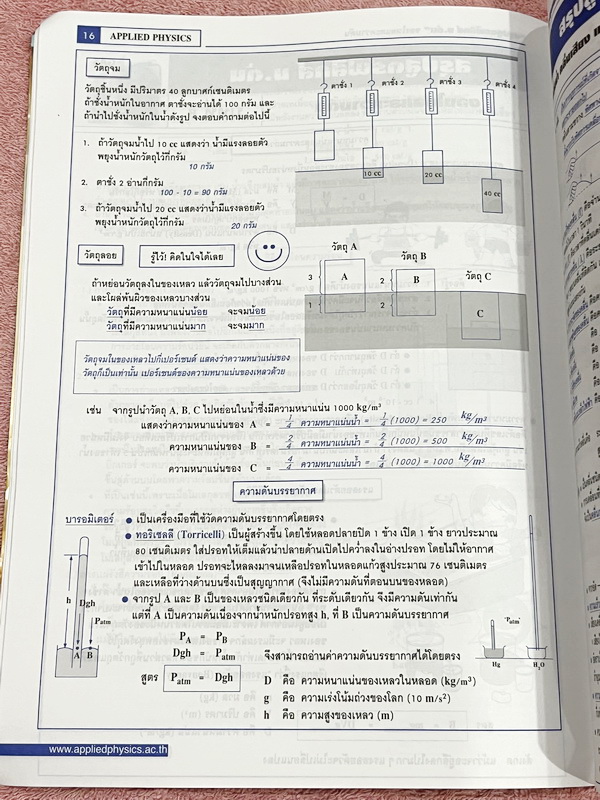 16 APPLIED PHYSICS
วัตถุจม
วัตถุชิ้นหนึ่ง มีปริมาตร 40 ลูกบาศก์เซนติเมตร
ถ้าชั่งน้ำหนักในอากาศ ตาชั่งจะอ่านได้ 100 กรัม และ
ถ้านำไปชั่งน้ำหนักในน้ำดังรูป จงตอบคำถามต่อไปนี้
1. ถ้าวัตถุจมน้ำไป 10 cc แสดงว่า น้ำมีแรงลอยตัว
พยุงน้ำหนักวัตถุไว้กี่กรัม
10 กรัม
2. ตาชั่ง 2 อ่านกี่กรัม
100 - 10 = 90 กรัม
3. ถ้าวัตถุจมน้ำไป 20 cc แสดงว่าน้ำมีแรงลอยตัว
พยุงน้ำหนักวัตถุไว้กี่กรัม
20 กรัม
ตาชั่ง 1
ตาชั่ง 2
ตาชั่ง 3
ตาชั่ง 4
10 cc
20 cc
40 cc
วัตถุลอย
รู้ไว้! คิดในใจได้เลย
ถ้าหย่อนวัตถุลงในของเหลว แล้ววัตถุจมไปบางส่วน
และโผล่พ้นผิวของเหลวบางส่วน
วัตถุที่มีความหนาแน่นน้อย จะจมน้อย
วัตถุที่มีความหนาแน่นมาก จะจมมาก
วัตถุ A
วัตถุ B
วัตถุ C
3
1
A
2
2
B
C
วัตถุจมในของเหลวไปกี่เปอร์เซนต์ แสดงว่าความหนาแน่นของ
วัตถุก็เป็นเท่านั้น เปอร์เซนต์ของความหนาแน่นของเหลวด้วย
เช่น จากรูปนำวัตถุ A, B, C ไปหย่อนในน้ำซึ่งมีความหนาแน่น 1000 kg/m³
แสดงว่าความหนาแน่นของ A = 1/4 ความหนาแน่นน้ำ = 1/4 (1000) = 250 kg/m³
ความหนาแน่นของ B = 2/4 ความหนาแน่นน้ำ = 2/4 (1000) = 500 kg/m³
ความหนาแน่นของ C = 4/4 ความหนาแน่นน้ำ = 4/4 (1000) = 1000 kg/m³
ความดันบรรยากาศ
บารอมิเตอร์ ● เป็นเครื่องมือที่ใช้วัดความดันบรรยากาศโดยตรง
● ทอริเซลลี (Torricelli) เป็นผู้สร้างขึ้น โดยใช้หลอดปลายปิด 1 ข้าง เปิด 1 ข้าง ยาวประมาณ
80 เซนติเมตร ใส่ปรอทให้เต็มแล้วนำปลายด้านเปิดไปคว่ำลงในอ่างปรอท โดยไม่ให้อากาศ
เข้าไปในหลอด ปรอทจะไหลลงมาจนเหลือปรอทในหลอดแก้วสูงประมาณ 76 เซนติเมตร
และเหลือที่ว่างด้านบนซึ่งเป็นสุญญากาศ (จึงไม่มีความดันที่ตอนบนของหลอด)
● จากรูป A และ B เป็นของเหลวชนิดเดียวกัน ที่ระดับเดียวกัน จึงมีความดันเท่ากัน
แต่ที่ A เป็นความดันเนื่องจากน้ำหนักปรอทสูง h, ที่ B เป็นความดันบรรยากาศ
h
Dgh
Patm
A B
P_A = P_B
Dgh = P_atm จึงสามารถอ่านค่าความดันบรรยากาศได้โดยตรง
สูตร P_atm = Dgh
D คือ ความหนาแน่นของเหลวในหลอด (kg/m³)
g คือ ความเร่งโน้มถ่วงของโลก (10 m/s²)
h คือ ความสูงของเหลว (m)
Patm
Hg
H₂O
www.appliedphysics.ac.th